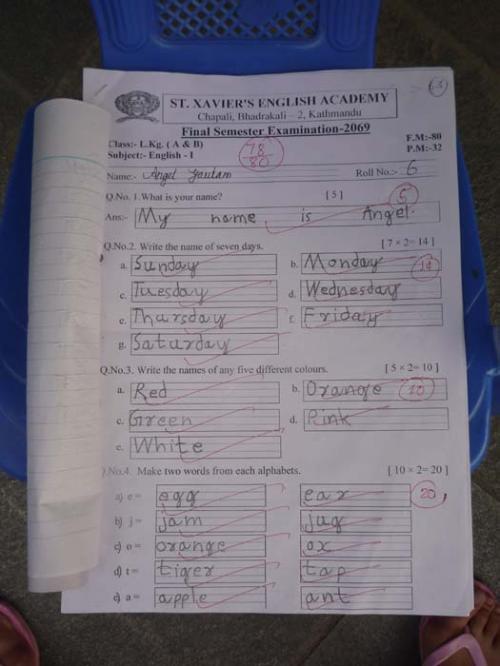 ST. XAVIER'S ENGLISH ACADEMY
Chapali, Bhadrakali – 2, Kathmandu
Final Semester Examination-2069
Class:- L.Kg. (A & B) F.M:-80
Subject:- English - I 78/80 P.M:-32
Name:- Angel Gautam Roll No:- 6
Q.No. 1.What is your name? [ 5 ] 5
Ans:- My name is Angel.
Q.No.2. Write the name of seven days. [ 7 × 2= 14 ]
a. Sunday b. Monday 14
c. Tuesday d. Wednesday
e. Thursday f. Friday
g. Saturday
Q.No.3. Write the names of any five different colours. [ 5 × 2= 10 ]
a. Red b. Orange 10
c. Green d. Pink
e. White
Q.No.4. Make two words from each alphabets. [ 10 × 2= 20 ]
a) e = egg ear 20
b) j = jam jug
c) o = orange ox
d) t = tiger tap
e) a = apple ant